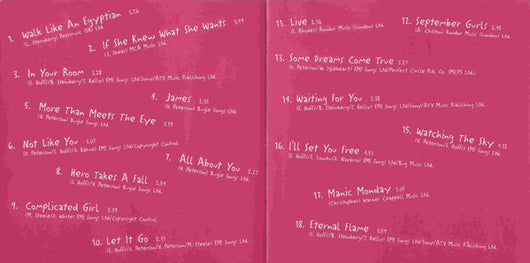 1. Walk Like An Egyptian 3.26
(L. Steinberg) Peermusic (UK) Ltd.
2. If She Knew What She Wants 3.49
(J. Shear) MCA Music Ltd.
3. In Your Room 3.28
(S. Hoffs/B. Steinberg/T. Kelly) EMI Songs Ltd/Sony/ATV Music Publishing Ltd.
4. James
(V. Peterson) Bugle Songs Ltd.
5. More Than Meets The Eye
(V. Peterson) Bugle Songs Ltd.
6. Not Like You 3.07
(D. Peterson/S. Hoffs/D. Kahne) EMI Songs Ltd/Copyright Control
7. All About You
(V. Peterson) Bugle Songs Ltd.
8. Hero Takes A Fall 2.54
(S. Hoffs/V. Peterson) Bugle Songs Ltd.
9. Complicated Girl
(M. Steele/D. White) EMI Songs Ltd/Copyright Control
10. Let It Go
(S. Hoffs/D. Peterson/V. Peterson/M. Steele) EMI Songs Ltd.
11. Live
(E. Rhodes) Rondor Music (London) Ltd.
12. September Gurls
(A. Chilton) Rondor Music (London) Ltd.
13. Some Dreams Come True 3.21
(D. Peterson/W. Iglehart) EMI Songs Ltd/Perfect Circle Pub. Co. (MCPS Ltd.)
14. Waiting For You 3.38
(S. Hoffs/B. Steinberg/T. Kelly) EMI Songs Ltd/Sony/ATV Music Publishing Ltd.
15. Watching The Sky
(V. Peterson/S. Hoffs) EMI Songs Ltd.
16. I'll Set You Free 4.51
(S. Hoffs/E. Lowen/D. Navarro) EMI Songs Ltd/Bug Music Ltd.
17. Manic Monday 3.05
(Christopher) Warner Chappell Music Ltd.
18. Eternal Flame
(S. Hoffs/B. Steinberg/T. Kelly) EMI Songs Ltd/Sony/ATV Music Publishing Ltd.